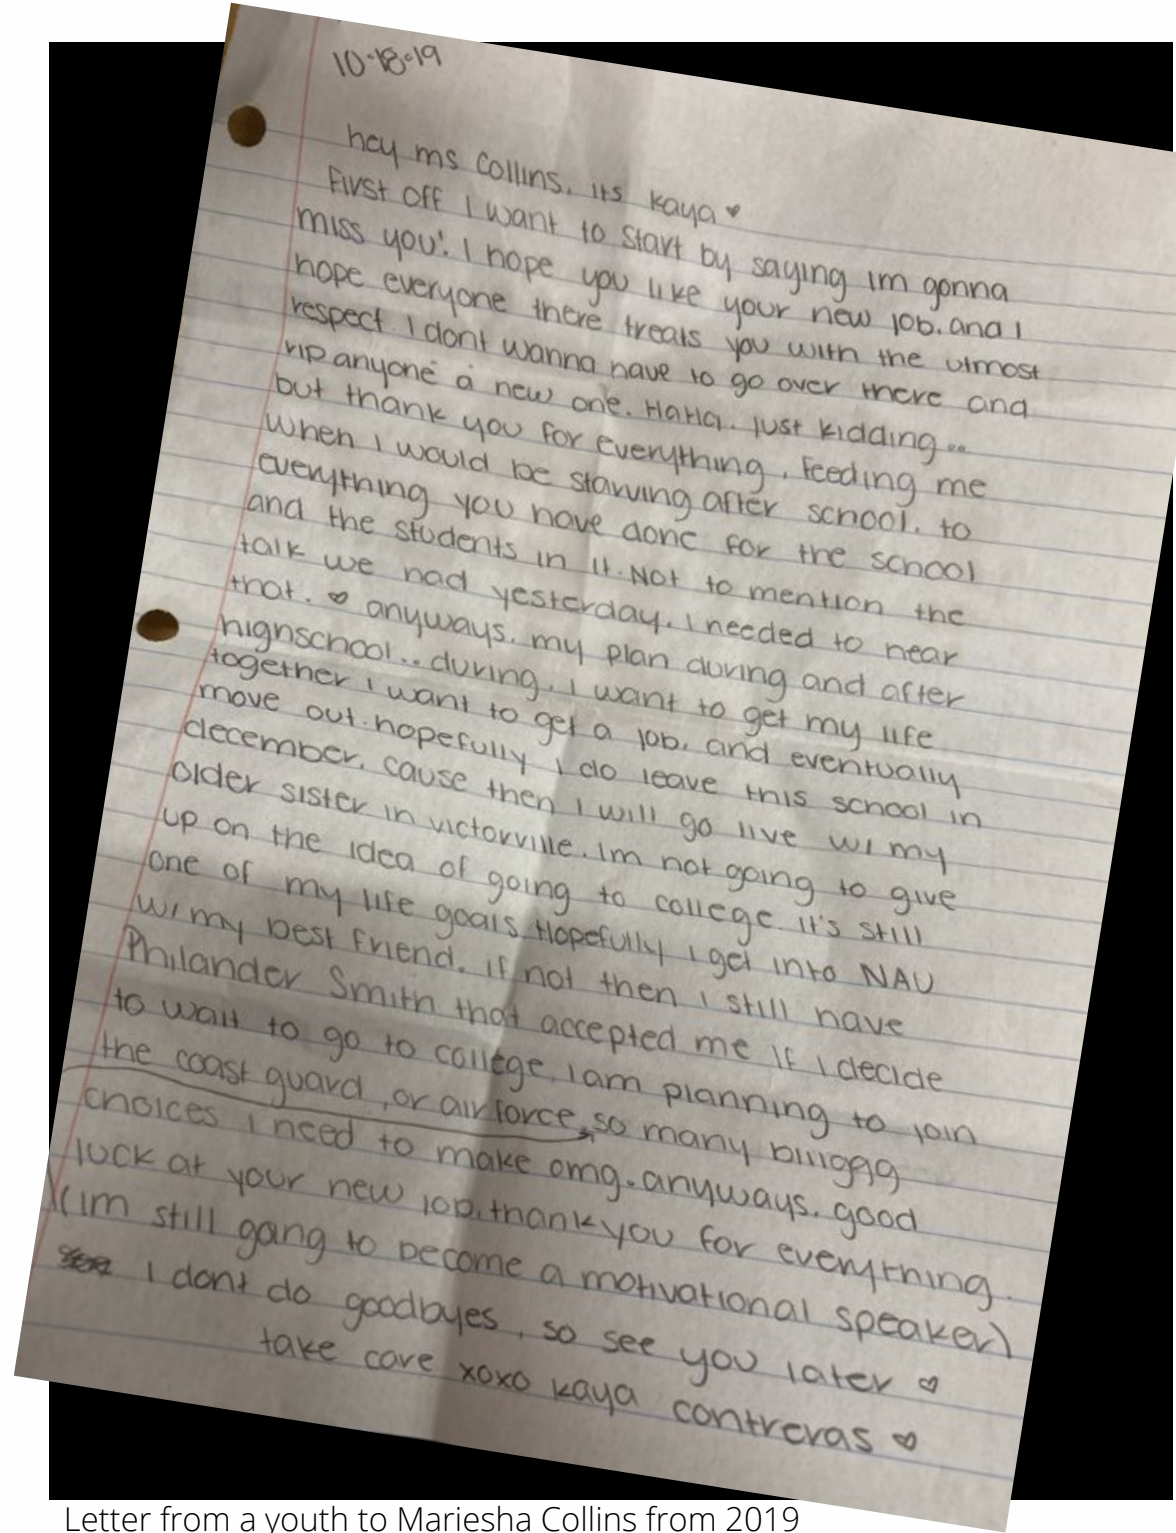 10.18.19
hey ms Collins. its kaya ♥
First off I want to start by saying im gonna
miss you! I hope you like your new job. and I
hope everyone there treats you with the utmost
respect. I dont wanna have to go over there and
rip anyone a new one. HaHa. just kidding..
but thank you for everything, feeding me
when I would be starving after school. to
everything you have done for the school
and the students in it. Not to mention the
talk we had yesterday. I needed to hear
that. ♡ anyways. my plan during and after
highschool.. during. I want to get my life
together I want to get a job. and eventually
move out. hopefully I do leave this school in
december. cause then I will go live w/ my
older sister in victorville. Im not going to give
up on the idea of going to college. it's still
one of my life goals. Hopefully I get into NAU
w/ my best friend. if not then I still have
Philander Smith that accepted me if I decide
to wait to go to college, I am planning to join
the coast guard, or airforce, so many biiiggg
choices I need to make omg. anyways. good
luck at your new job. thank you for everything.
(im still going to become a motivational speaker)
I dont do goodbyes, so see you later ♡
take care xoxo kaya contreras ♡
Letter from a youth to Mariesha Collins from 2019